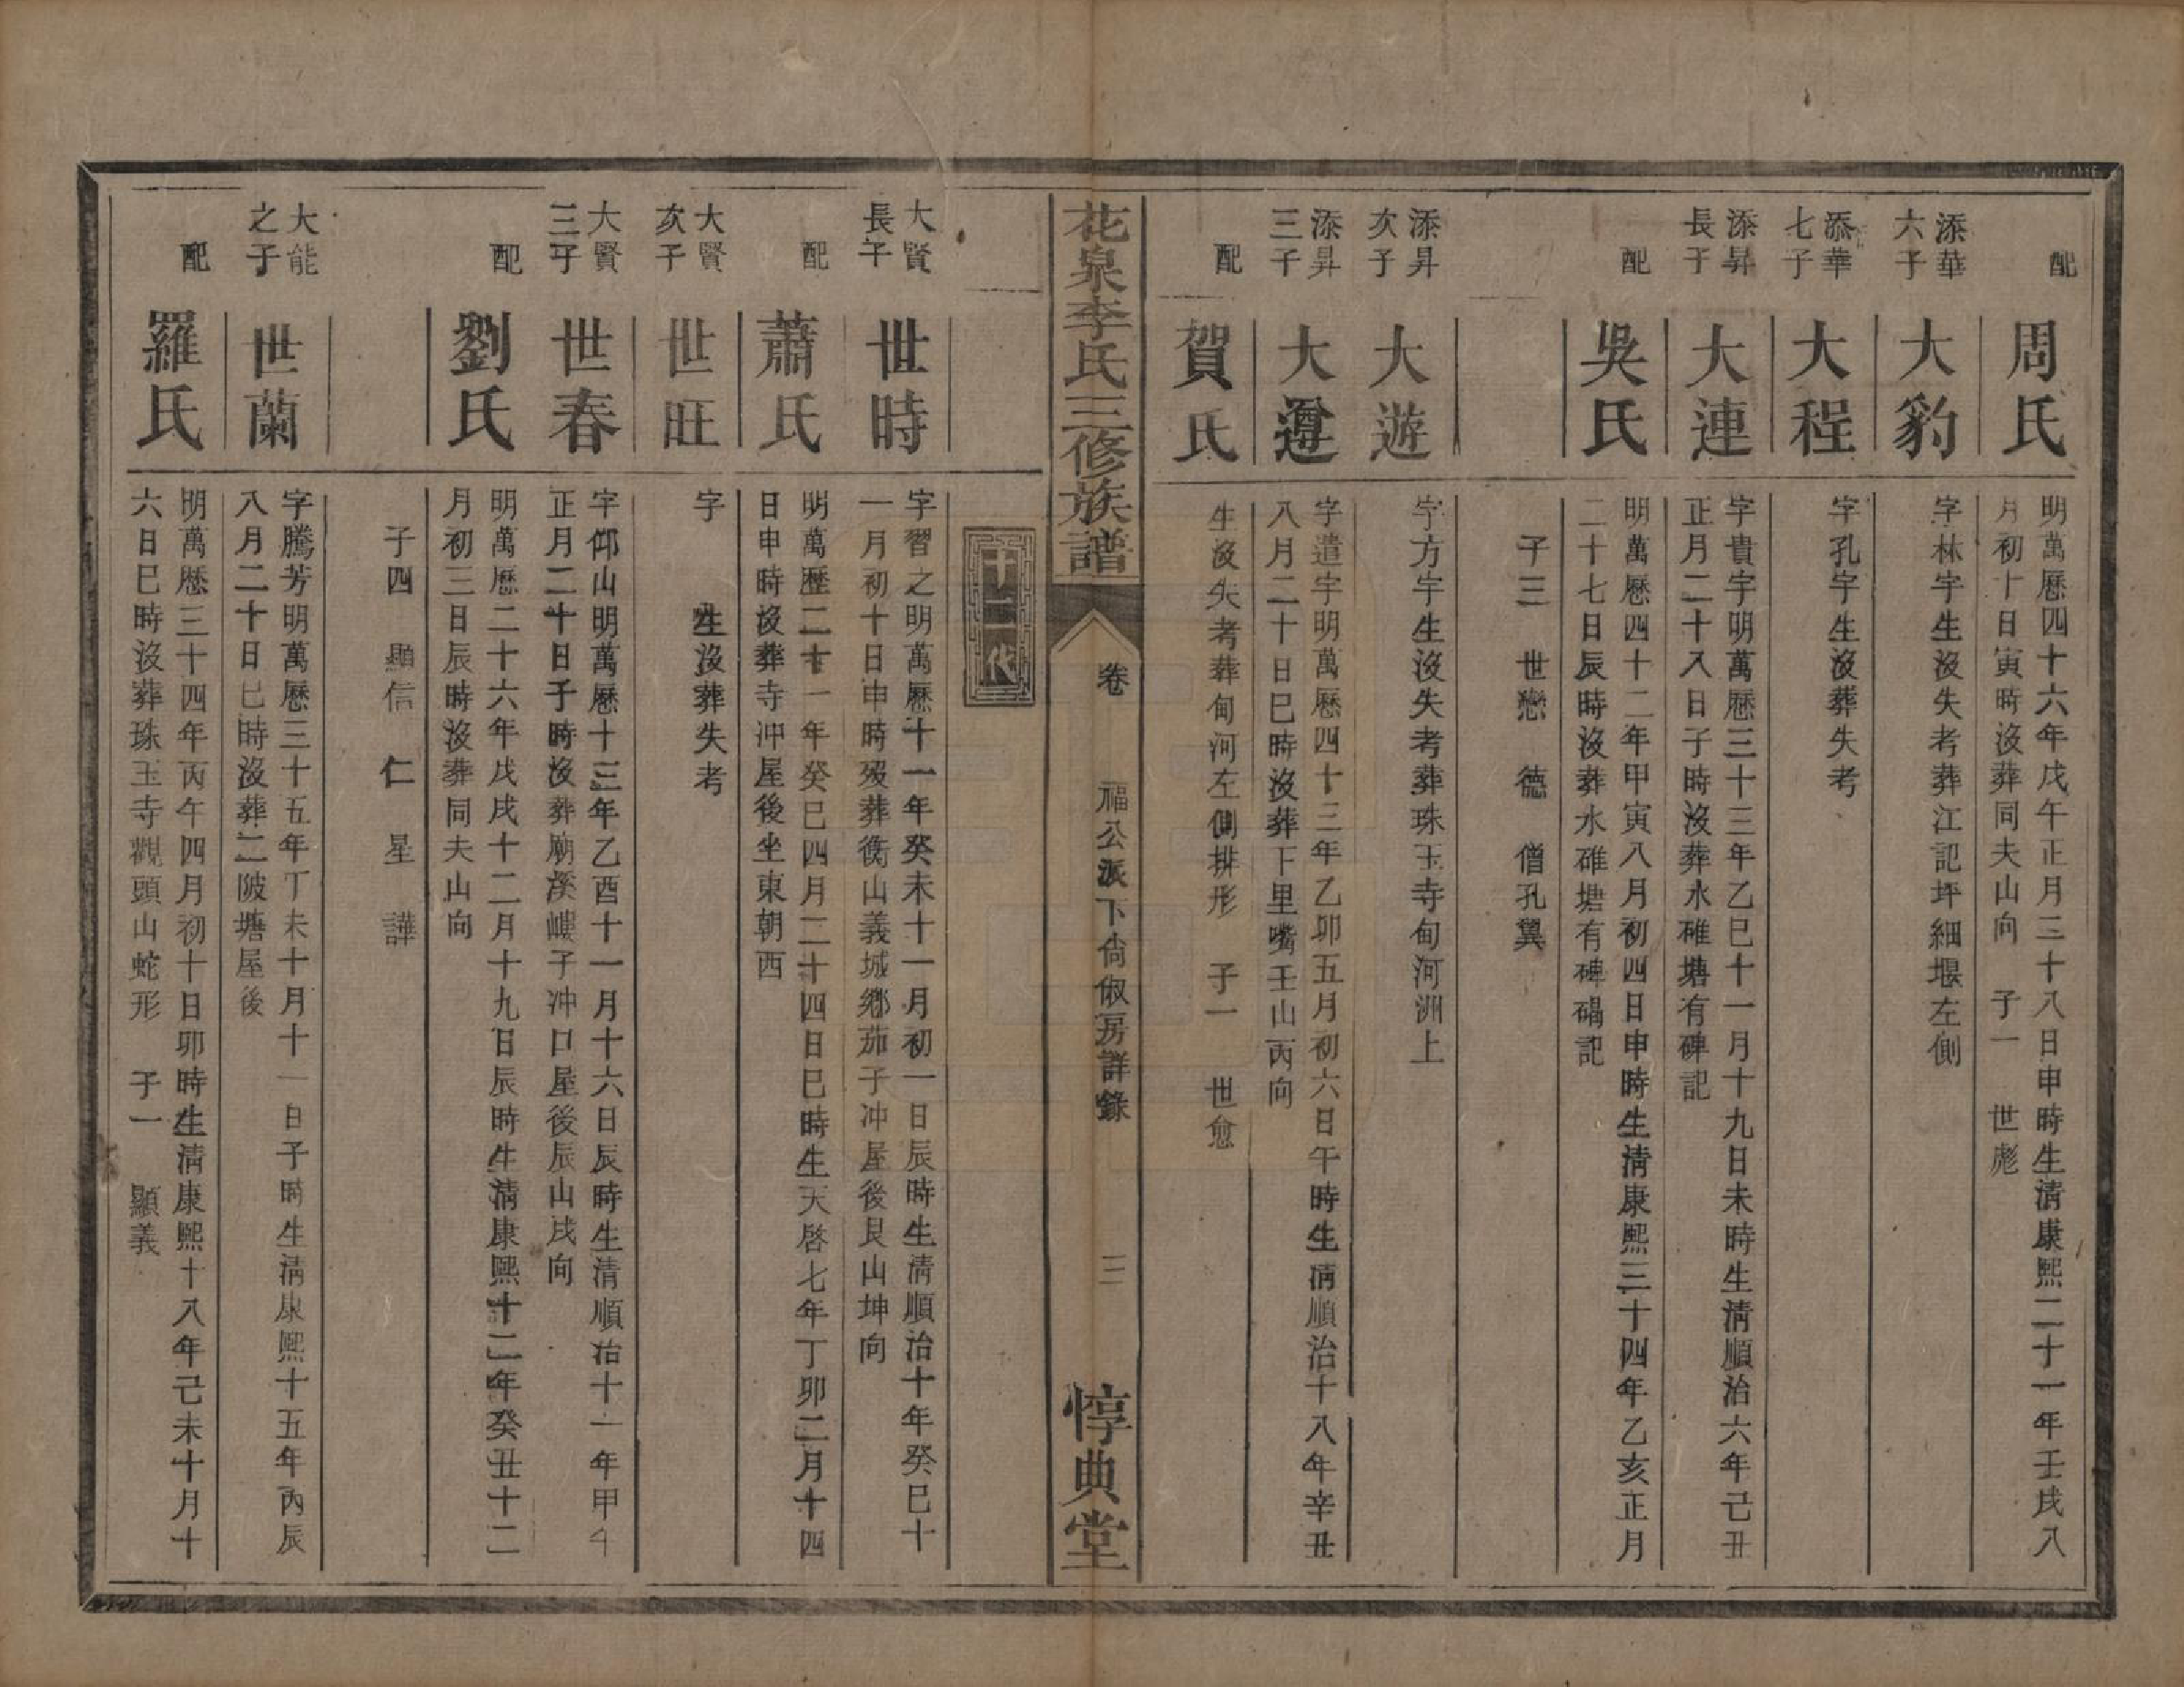 配
周氏
明萬曆四十六年戊午正月三十八日申時生清康熙二十一年壬戌八
月初十日寅時沒葬同夫山向 子一 世彪
添華
六子
大豹
字林宇生沒失考葬江記坪細堰左側
添華
七子
大程
字孔宇生沒葬失考
添昇
長子
大連
字貴宇明萬曆三十三年乙巳十一月十九日未時生清順治六年己丑
正月二十八日子時沒葬水碓塘有碑記
配
吳氏
明萬曆四十二年甲寅八月初四日申時生清康熙三十四年乙亥正月
二十七日辰時沒葬水碓塘有碑碣記
子三 世戀 德 僧孔翼
添昇
次子
大遊
字方宇生沒失考葬珠玉寺甸河洲上
添昇
三子
大遵
字遣宇明萬曆四十三年乙卯五月初六日午時生清順治十八年辛丑
八月二十日巳時沒葬下里嘴壬山丙向
配
賀氏
生沒失考葬甸河左側排形 子一 世愈
花泉李氏三修族譜
卷 福公派下尙俶房詳錄
三
惇典堂
十二代
大賢
長子
世時
字習之明萬曆十一年癸未十一月初一日辰時生清順治十年癸巳十
一月初十日申時歿葬衡山義城鄉茄子冲屋後艮山坤向
配
蕭氏
明萬歷二十一年癸巳四月二十四日巳時生天啓七年丁卯二月十四
日申時沒葬寺沖屋後坐東朝西
大賢
次子
世旺
字 生沒葬失考
大賢
三子
世春
字仰山明萬曆十三年乙酉十一月十六日辰時生清順治十一年甲午
正月二十日子時沒葬廟溪嶁子冲口屋後辰山戌向
配
劉氏
明萬曆二十六年戊戌十二月十九日辰時生清康熙十二年癸丑十二
月初三日辰時沒葬同夫山向
子四 顯信 仁 星 譁
大能
之子
世蘭
字騰芳明萬曆三十五年丁未十月十一日子時生清康熙十五年丙辰
八月二十日巳時沒葬二陂塘屋後
配
羅氏
明萬曆三十四年丙午四月初十日卯時生清康熙十八年己未十月十
六日巳時沒葬珠玉寺觀頭山蛇形 子一 顯義